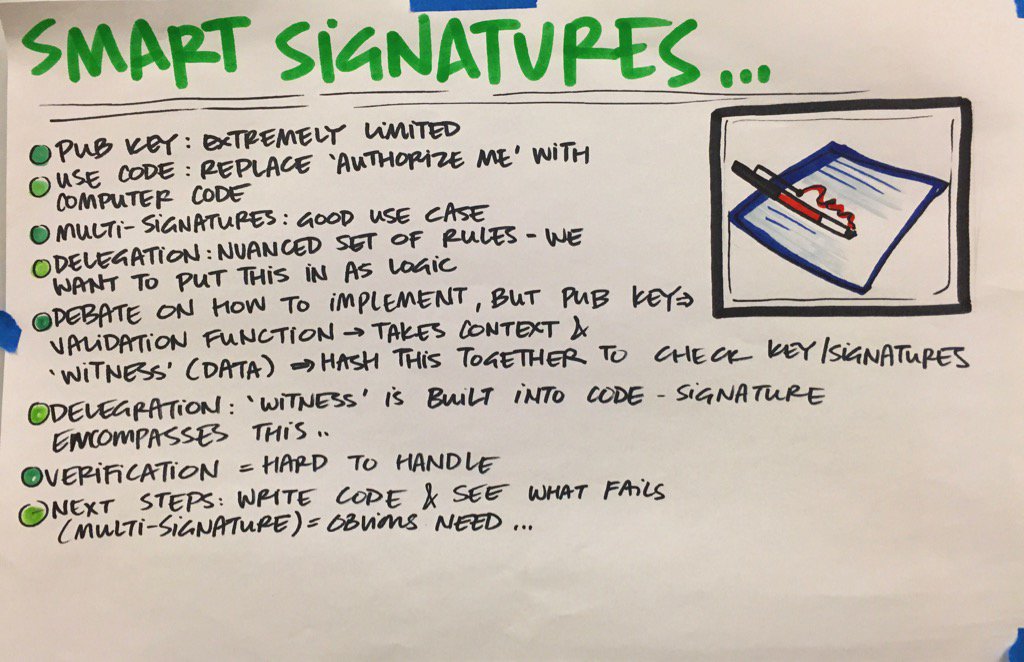 SMART SIGNATURES...
PUB KEY: EXTREMELY LIMITED
USE CODE: REPLACE 'AUTHORIZE ME' WITH
COMPUTER CODE
MULTI-SIGNATURES: GOOD USE CASE
DELEGATION: NUANCED SET OF RULES - WE
WANT TO PUT THIS IN AS LOGIC
DEBATE ON HOW TO IMPLEMENT, BUT PUB KEY ⇒
VALIDATION FUNCTION → TAKES CONTEXT &
'WITNESS' (DATA) ⇒ HASH THIS TOGETHER TO CHECK KEY/SIGNATURES
DELEGRATION: 'WITNESS' IS BUILT INTO CODE - SIGNATURE
ENCOMPASSES THIS..
VERIFICATION = HARD TO HANDLE
NEXT STEPS: WRITE CODE & SEE WHAT FAILS
(MULTI-SIGNATURE) = OBVIOUS NEED...